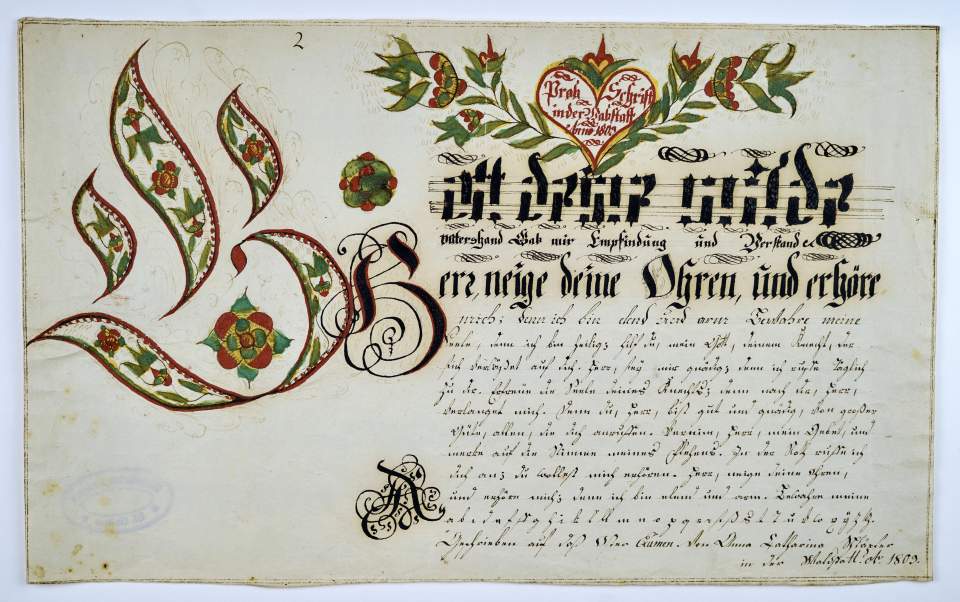 2
Prob Schrifft
in der Waldstatt
Anno 1803
Gott deine milde
vatershand Gab mir Empfindung und Verstand
Herr neige deine Ohren, und erhöre
mich; denn ich bin elend und arm Bewahre meine
Seele, denn ich bin heilig; hilf du, mein Gott, deinem Knecht, der
sich verläßet auf dich. Herr, sey mir gnädig; denn ich ruffe täglich
zu dir. Erfreue die Seele deines Knechts; denn nach dir, Herr,
verlanget mich. Denn du, Herr, bist gut und gnädig, von großer
Güte, allen, die dich anruffen. Vernim, Herr, mein Gebet, und
merke auf die Stimme meines Flehens. In der Noth ruffe ich
dich an; du wollest mich erhören. Herr, neige deine Ohren,
und erhöre mich; denn ich bin elend und arm. Bewahre meine
Geschrieben auf das Von Anna Catharina
in der Waldstatt 1803.